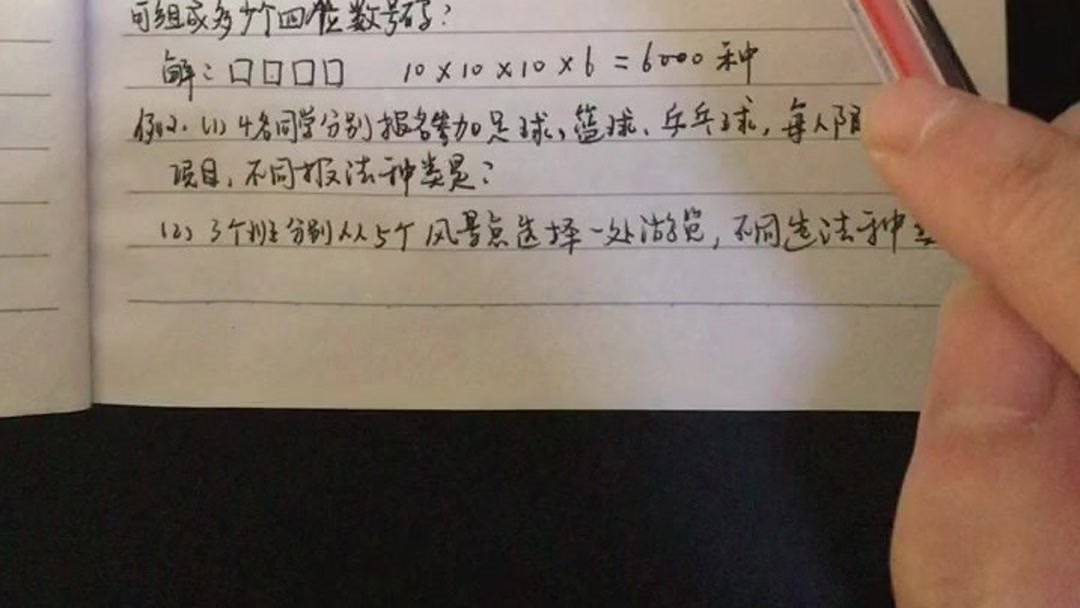 可组成多少个四位数号码?
解:□□□□ 10×10×10×6=6000种
例2.(1)4名同学分别报名参加足球、篮球、乒乓球,每人限
项目,不同报法种类是?
(2)3个班分别从5个风景点选择一处游览,不同选法种